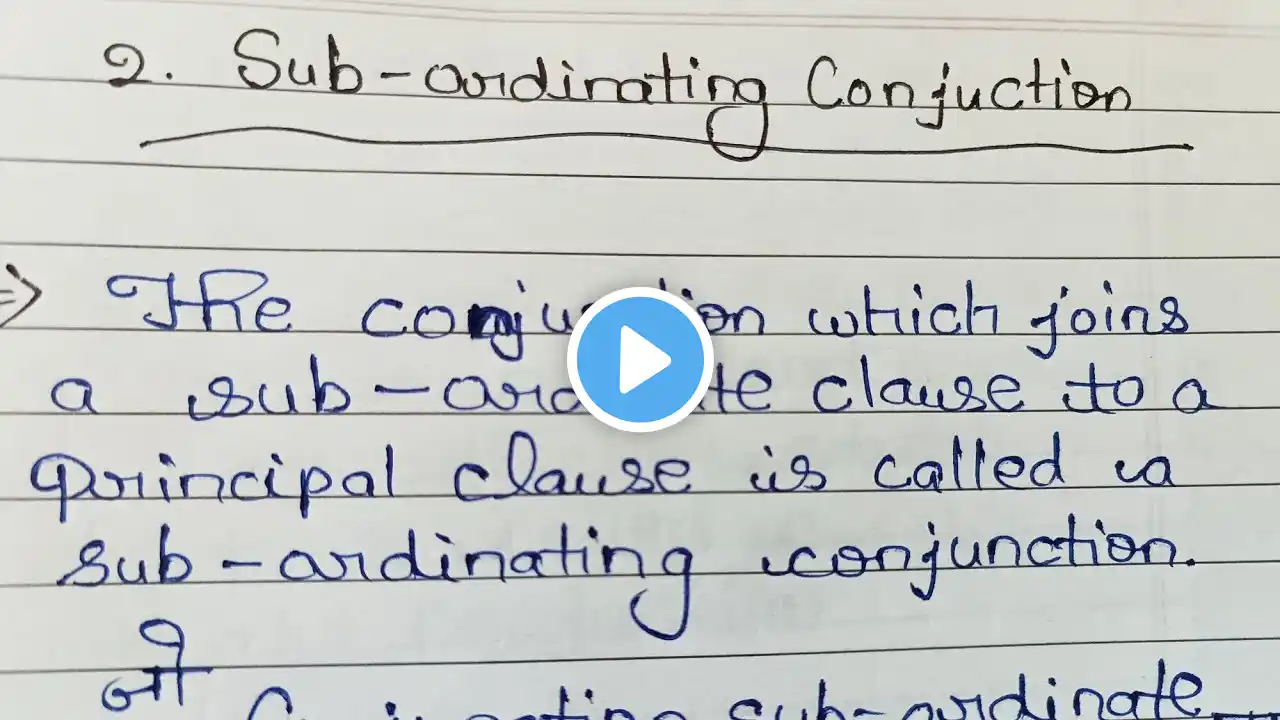 2. Sub-ordinating Conjuction
=> The conjuction which joins
a sub-ordinate clause to a
principal clause is called a
sub-ordinating conjunction.
जो
sub-ordinate